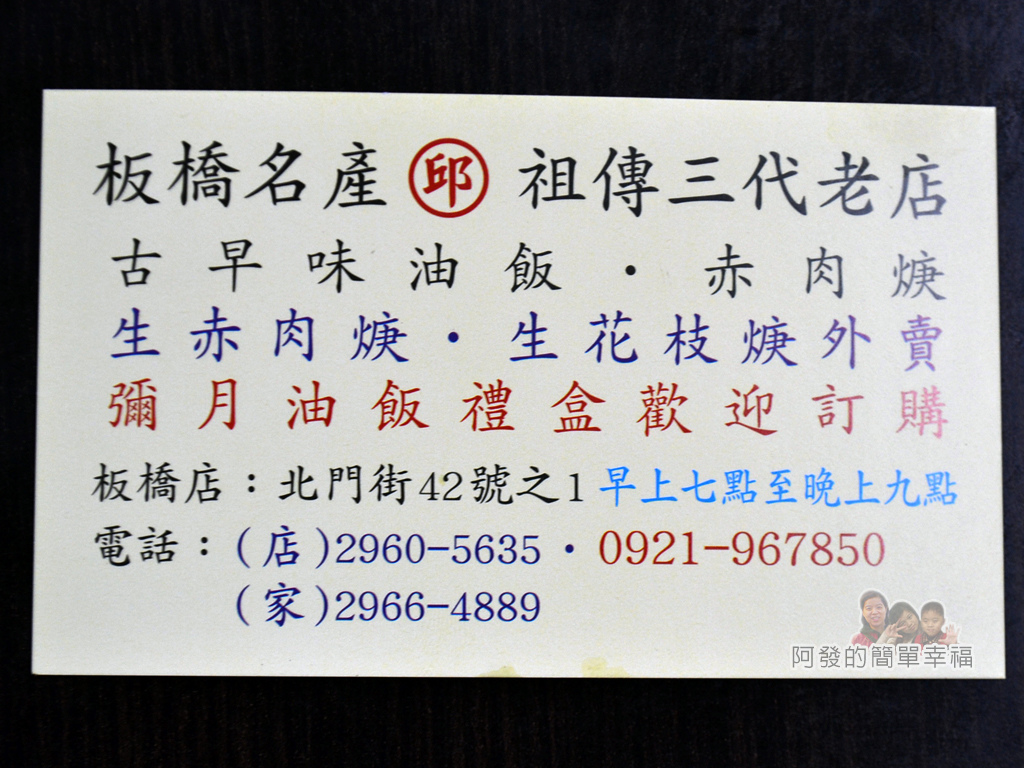 板橋名產 邱 祖傳三代老店
古早味油飯・赤肉焿
生赤肉焿・生花枝焿外賣
彌月油飯禮盒歡迎訂購
板橋店：北門街42號之1 早上七點至晚上九點
電話：(店)2960-5635・0921-967850
(家)2966-4889
阿發的簡單幸福